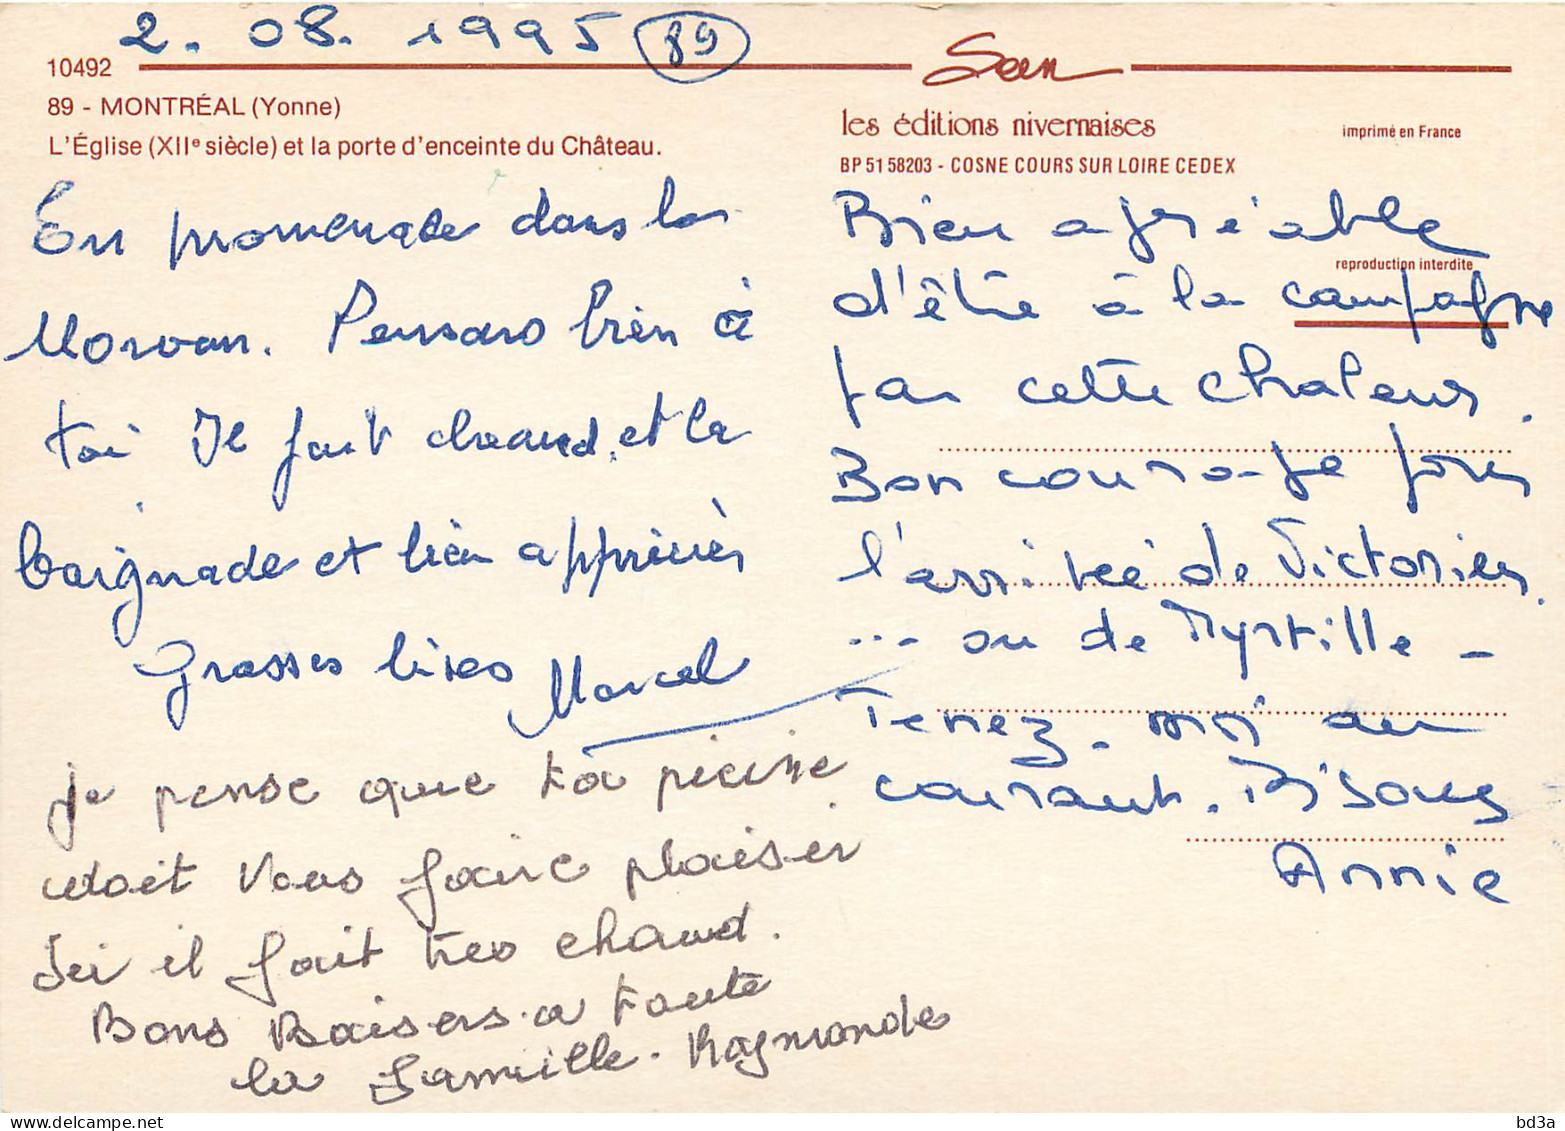 2. 08. 1995 89
10492
89 - MONTRÉAL (Yonne)
L'Église (XIIe siècle) et la porte d'enceinte du Château.
les éditions nivernaises
imprimé en France
BP 51 58203 - COSNE COURS SUR LOIRE CEDEX
reproduction interdite
En promenade dans le
Morvan. Pensons bien à
toi Il fait chaud, et la
baignade et bien appréciés
Grosses bises Marcel
je pense que ta picine
doit vous faire plaisir
Ici il fait tres chaud.
Bons Baisers a toute
la famille. Raymonde
Bien agréable
d'être à la campagne
par cette chaleur.
Bon courage pour
l'arrivée de Victorien
... ou de Myrtille -
Tenez-moi au
courant. Bisous
Annie
bd3a